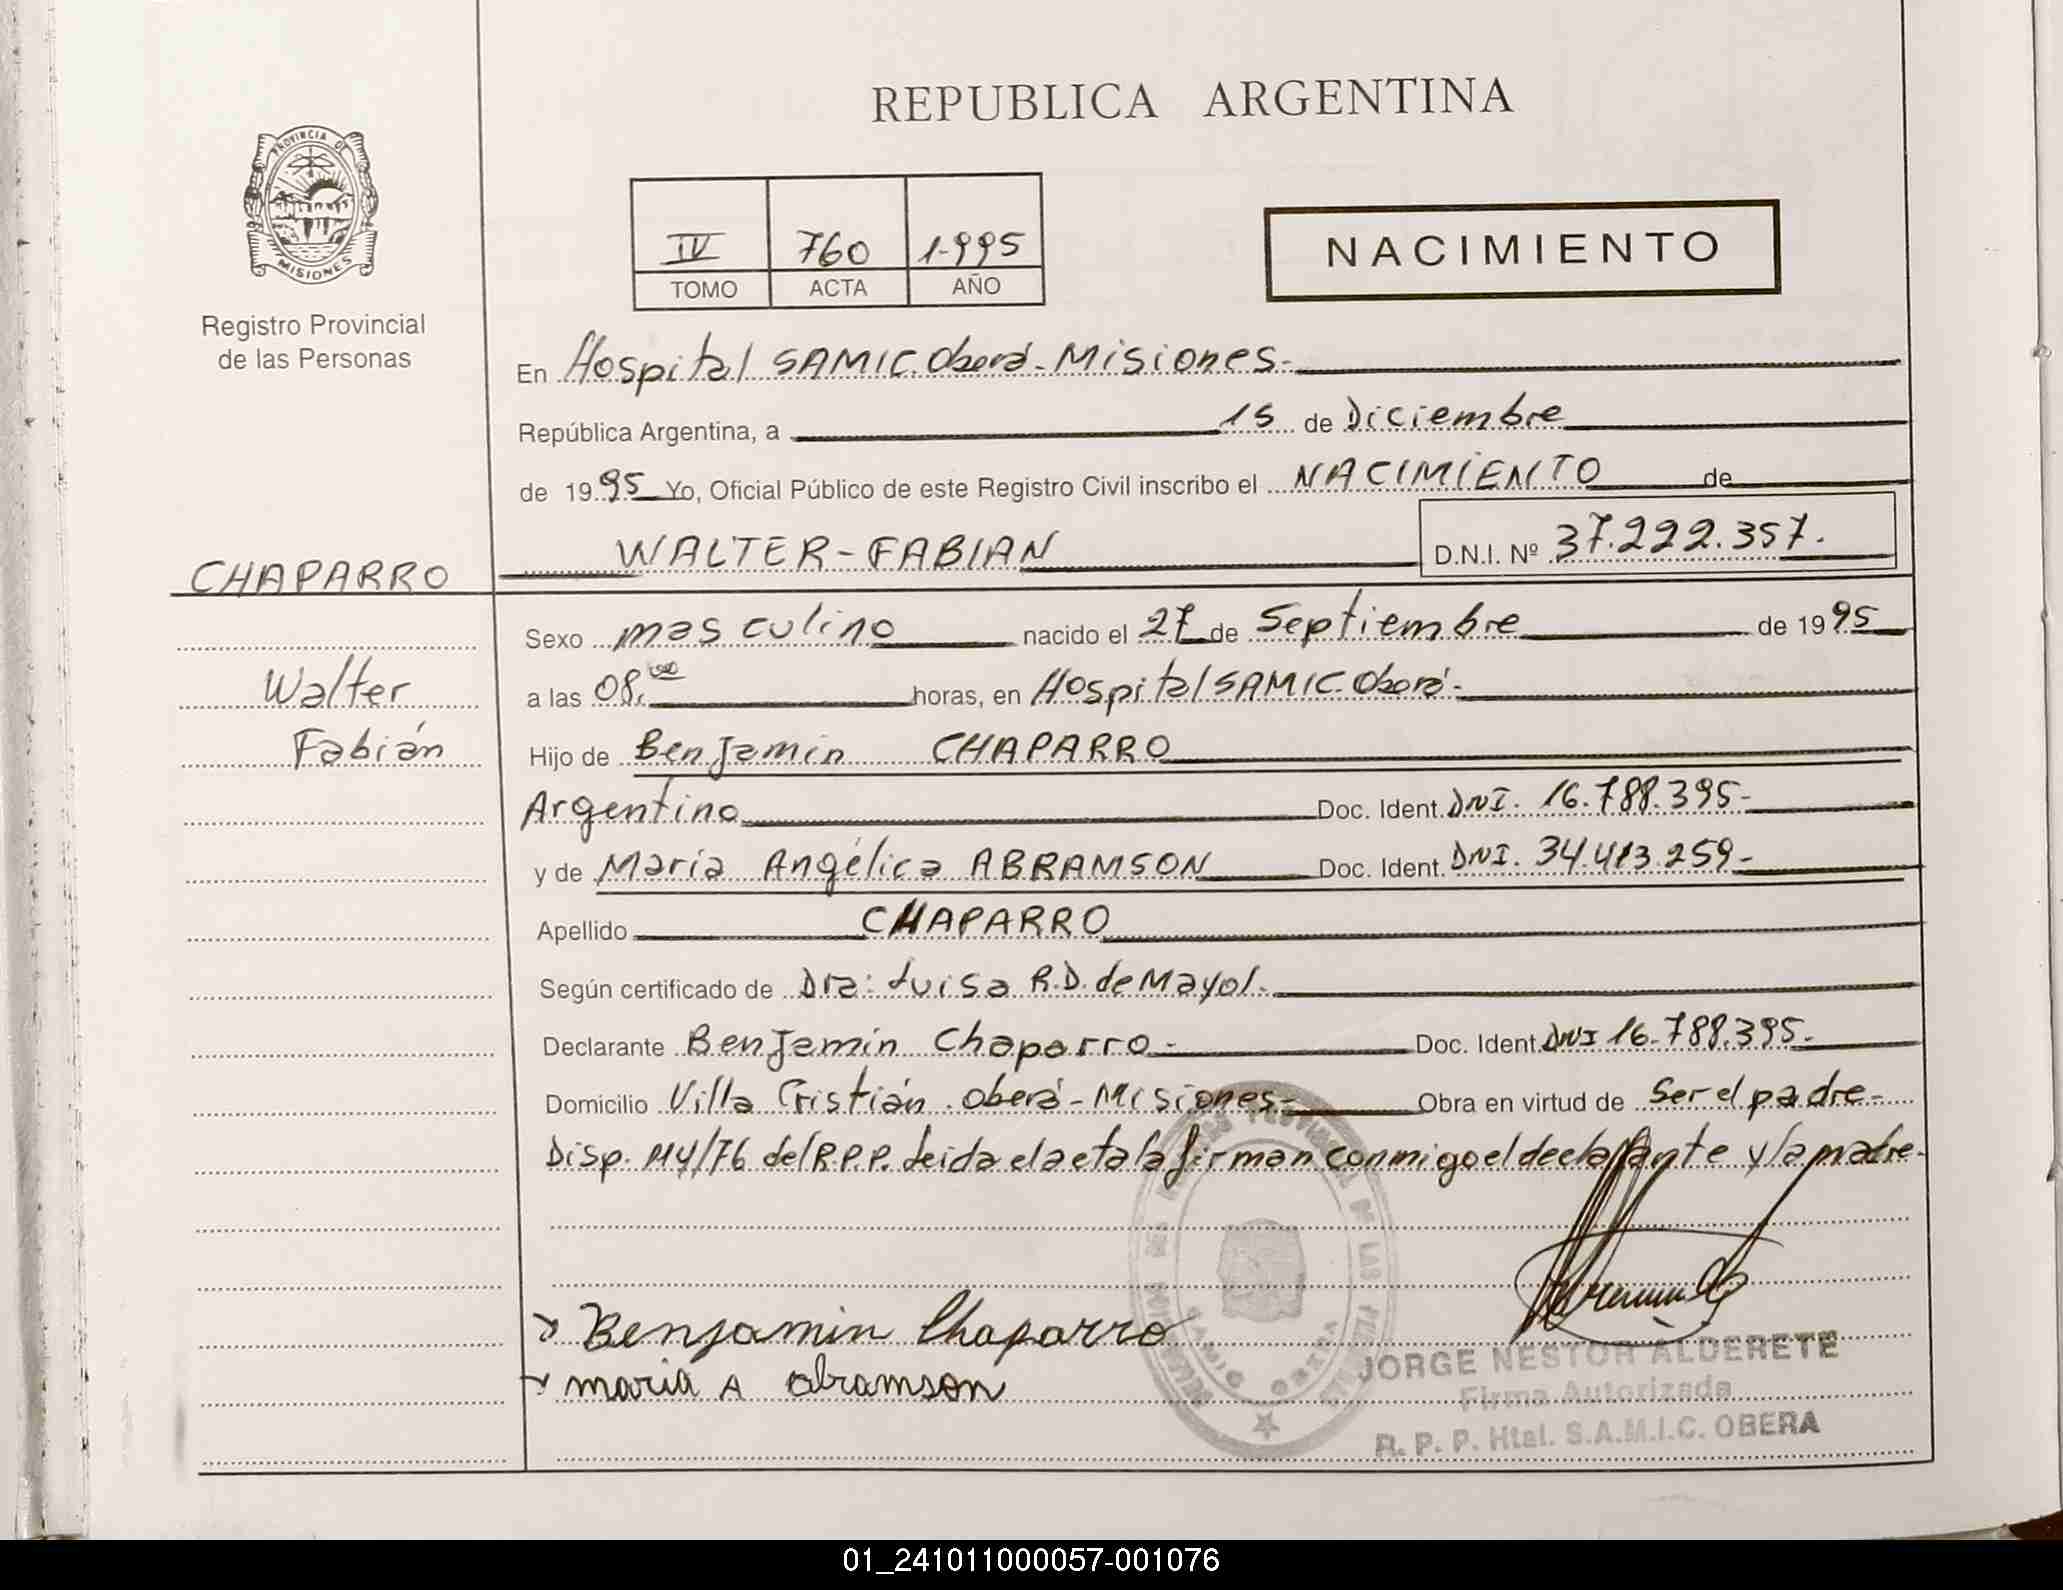 REPUBLICA ARGENTINA
PROVINCIA DE
MISIONES
Registro Provincial
de las Personas
IV 760 1.995
TOMO ACTA AÑO
NACIMIENTO
En Hospital SAMIC. Oberá - Misiones -
República Argentina, a 15 de Diciembre
de 1995 Yo, Oficial Público de este Registro Civil inscribo el NACIMIENTO de
WALTER - FABIAN D.N.I. Nº 37.222.357.
CHAPARRO
Walter
Fabián
Sexo masculino nacido el 27 de Septiembre de 1995
a las 08.00 horas, en Hospital SAMIC. Oberá -
Hijo de Benjamin CHAPARRO
Argentino Doc. Ident. DNI. 16.788.395 -
y de María Angélica ABRAMSON Doc. Ident. DNI. 34.413.259 -
Apellido CHAPARRO
Según certificado de Dra: Luisa R.D. de Mayol -
Declarante Benjamín Chaparro - Doc. Ident. DNI 16.788.395 -
Domicilio Villa Cristián. Oberá - Misiones - Obra en virtud de Ser el padre -
Disp. 114/76 del R.P.P. Leida el acta la firman conmigo el declarante y la madre -
Benjamin Chaparro
maria A abramson
JORGE NESTOR ALDERETE
Firma Autorizada
R. P. P. Htal. S.A.M.I.C. OBERA
01_241011000057-001076